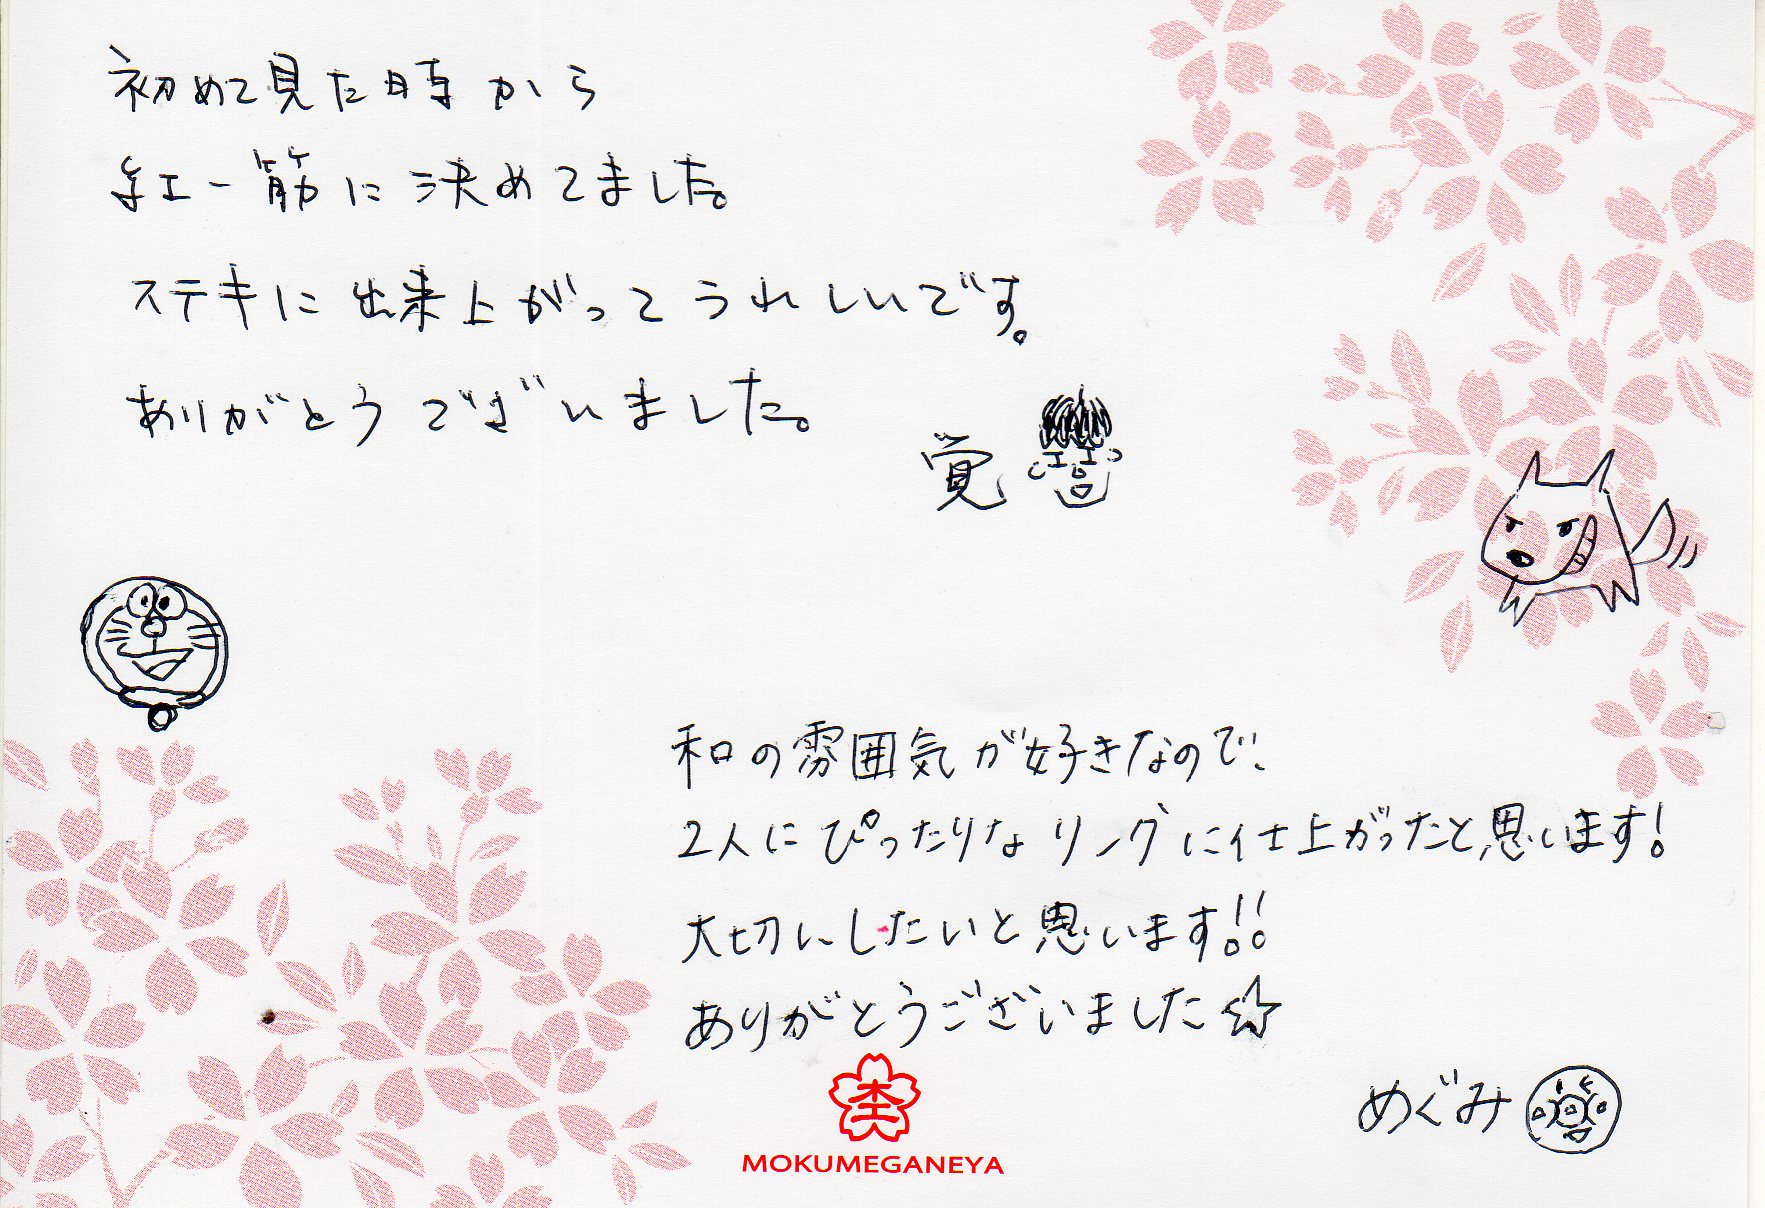 初めて見た時から
紅一筋に決めてました。
ステキに出来上がってうれしいです。
ありがとうございました。
覚
和の雰囲気が好きなので、
2人にぴったりなリングに仕上がったと思います!
大切にしたいと思います!!
ありがとうございました☆
めぐみ
杢
MOKUMEGANEYA